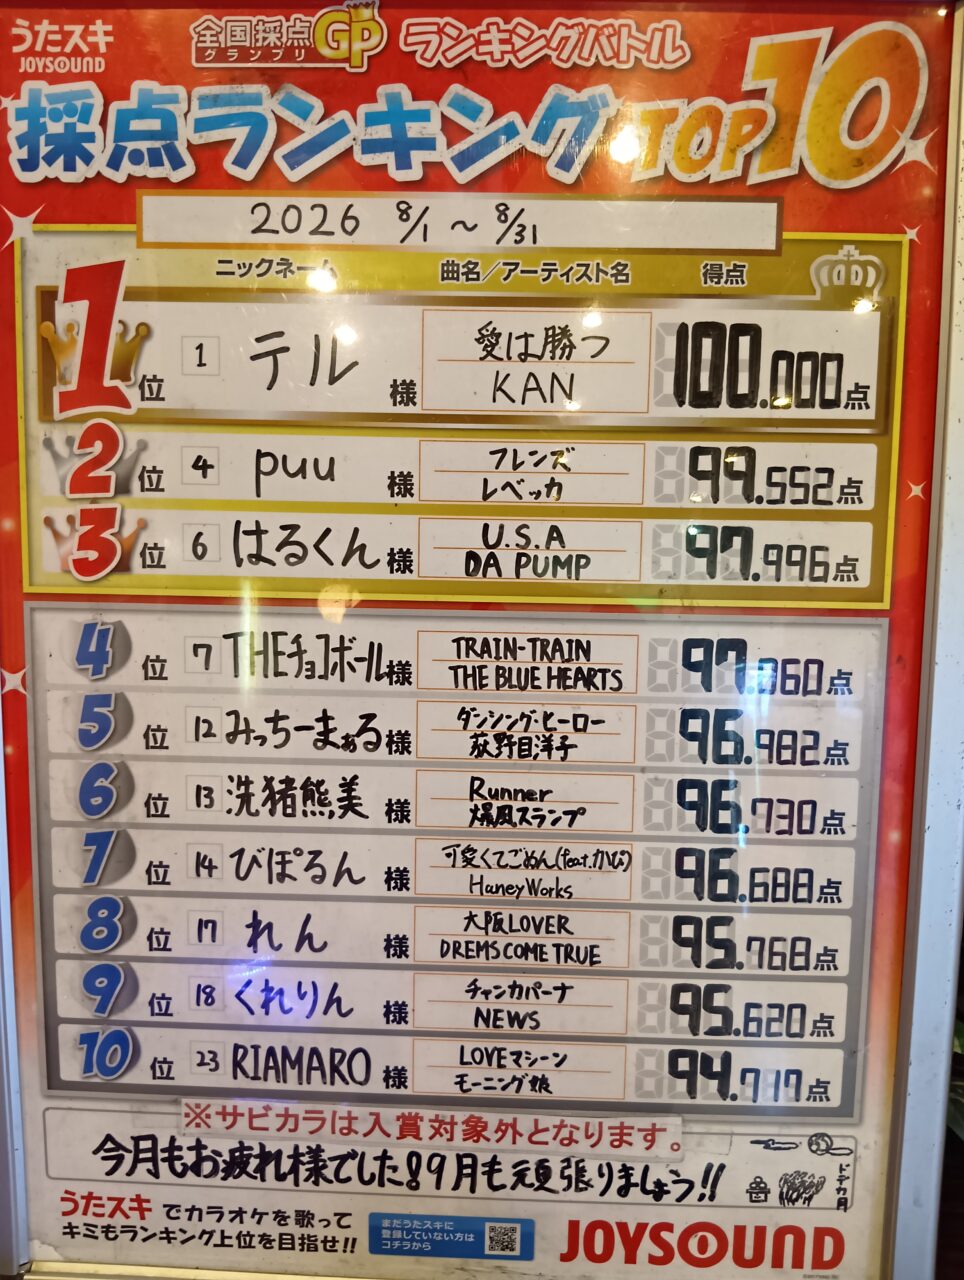 うたスキ
JOYSOUND
全国採点
グランプリ
GP
ランキングバトル
採点ランキングTOP10
2026 8/1 〜 8/31
ニックネーム 曲名／アーティスト名 得点
1位 1 テル 様 愛は勝つ 100.000点
KAN
2位 4 puu 様 フレンズ 99.552点
レベッカ
3位 6 はるくん 様 U.S.A 97.996点
DA PUMP
4位 7 THEチョコボール 様 TRAIN-TRAIN 97.860点
THE BLUE HEARTS
5位 12 みっちーまぁる 様 ダンシング・ヒーロー 96.982点
荻野目洋子
6位 13 洗猪熊美 様 Runner 96.730点
爆風スランプ
7位 14 びぽるん 様 可愛くてごめん(feat.かぴ) 96.688点
HaneyWorks
8位 17 れん 様 大阪LOVER 95.768点
DREMS COME TRUE
9位 18 くれりん 様 チャンカパーナ 95.620点
NEWS
10位 23 RIAMARO 様 LOVEマシーン 94.717点
モーニング娘
※サビカラは入賞対象外となります。
今月もお疲れ様でした!9月も頑張りましょう!!
ドデカ月
うたスキでカラオケを歌って
キミもランキング上位を目指せ!!
まだうたスキに
登録していない方は
コチラから
JOYSOUND